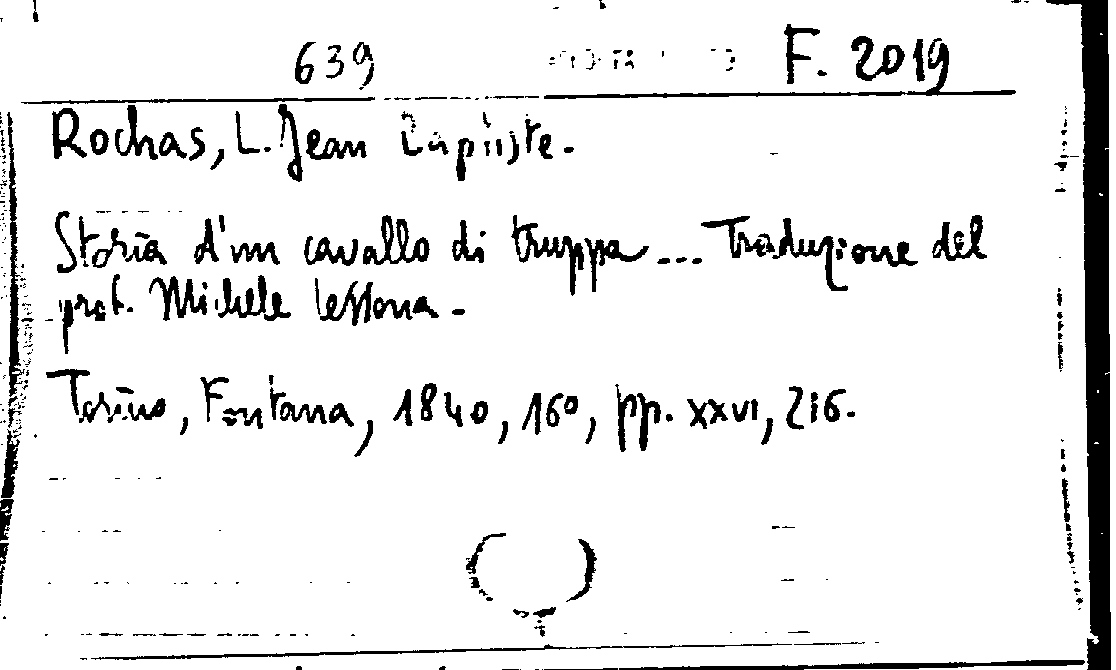 639 F. 2019
Rochas, L. Jean Bapiiste.
Storia d'un cavallo di truppa ... Traduzione del
prof. Michele Lessona.
Torino, Fontana, 1840, 16º, pp. XXVI, 216.